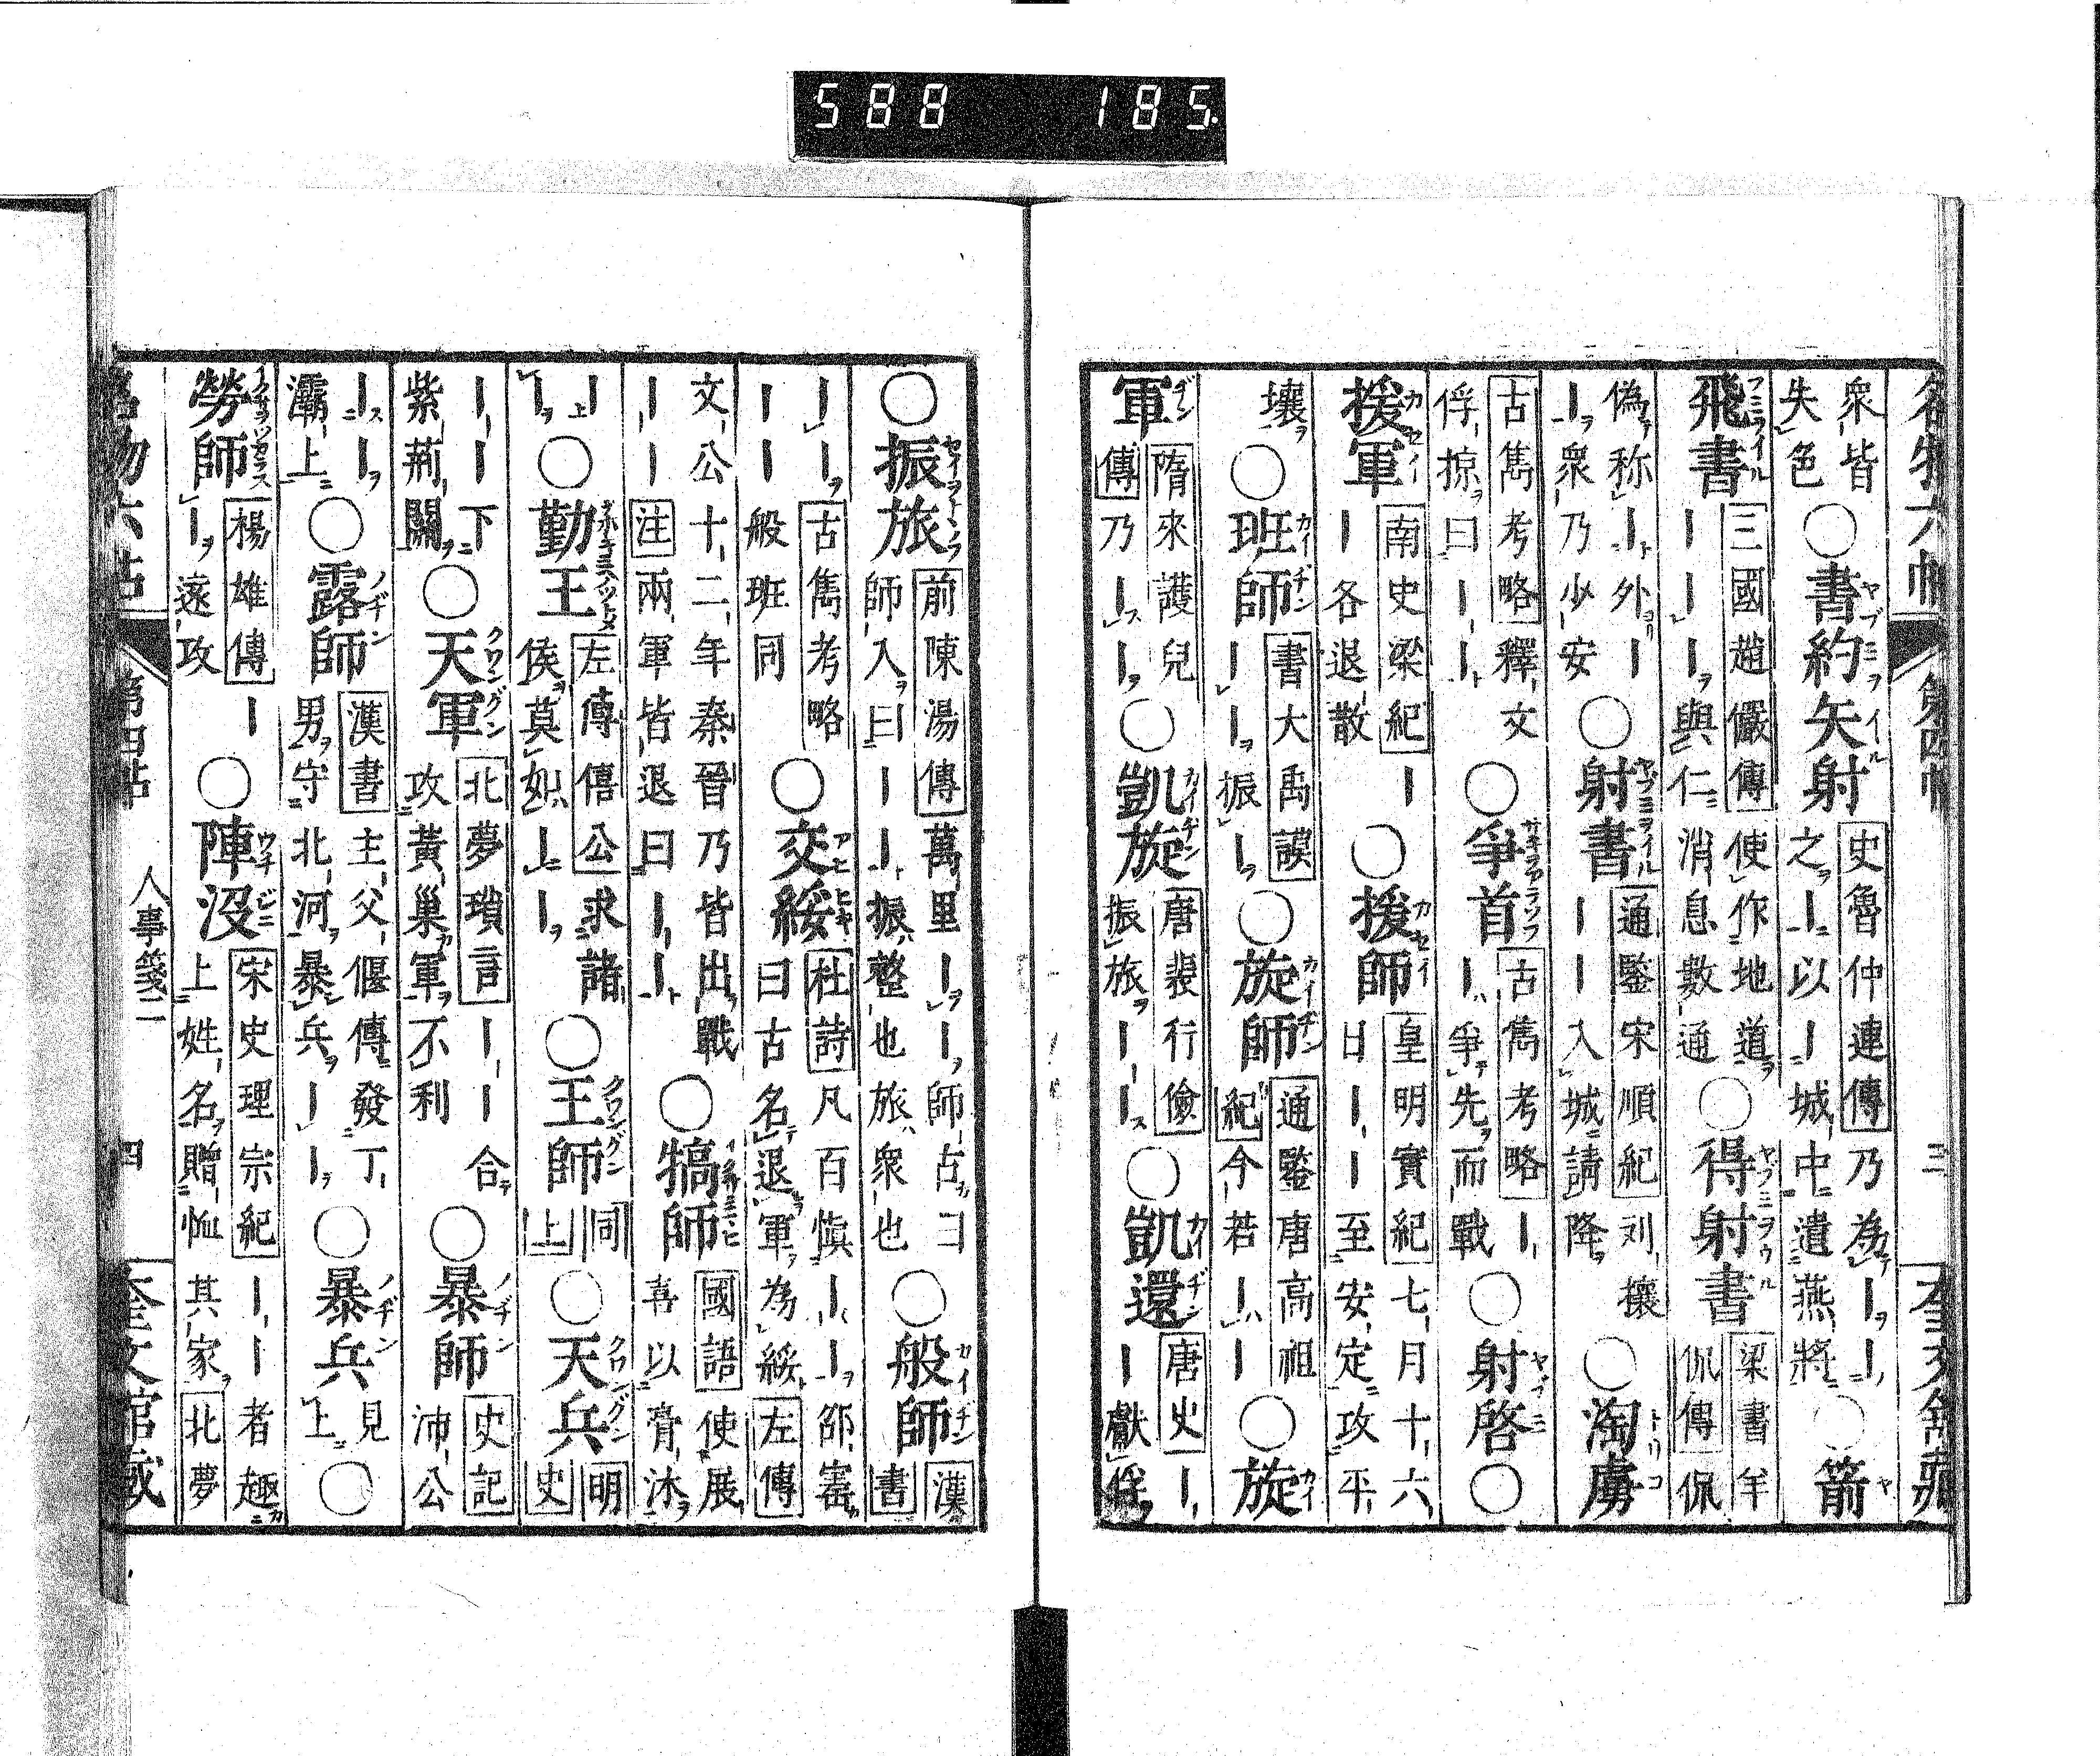 588 185
名物六帖 第四帖 三 奎文館藏
衆皆
失色
○書約矢射
史魯仲連傳乃為｜｜
之｜以｜城中遺燕將
○箭
飛書
三國趙儼傳使作地道
｜｜｜與仁消息數通
○得射書
梁書羊
侃傳侃
偽称｜外｜
｜衆乃少安
○射書
通鑒宋順紀刘攘
｜｜入城請降
○淘虜
古雋考略釋文
俘掠曰｜｜
○爭首
古雋考略｜
｜爭先而戰
○射啓○
援軍
南史梁紀｜
｜各退散
○援師
皇明實紀七月十六
日｜｜至安定攻平
壤
○班師
書大禹謨
｜｜振｜
○旋師
通鑒唐高祖
紀今若｜｜
○旋
軍
隋來護兒
傳乃｜｜
○凱旋
唐裴行儉
振旅｜｜
○凱還
唐史｜
｜獻俘
○振旅
前陳湯傳萬里｜｜師古曰
師入曰｜｜振整也旅衆也
○般師
漢
書
｜｜古雋考略
｜｜般班同
○交綏
杜詩凡百慎｜｜邵寚
曰古名退軍為綏左傳
文公十二年秦晉乃皆出戰
｜｜注兩軍皆退曰｜｜
○犒師
國語使展
喜以膏沐
｜
｜
○勤王
左傳僖公求諸
侯莫如｜｜
○王師
同
上
○天兵
明
史
｜｜下
紫荊關
○天軍
北夢瑣言｜｜合
攻黃巢軍不利
○暴師
史記
沛公
｜｜
灞上
○露師
漢書主父偃傳發丁
男守北河暴兵｜｜
○暴兵
見
上
○
勞師
楊雄傳｜
｜遠攻
○陣沒
宋史理宗紀｜｜者趣
上姓名贈恤其家北夢
名物六帖 第四帖 人事箋二 四 奎文館藏